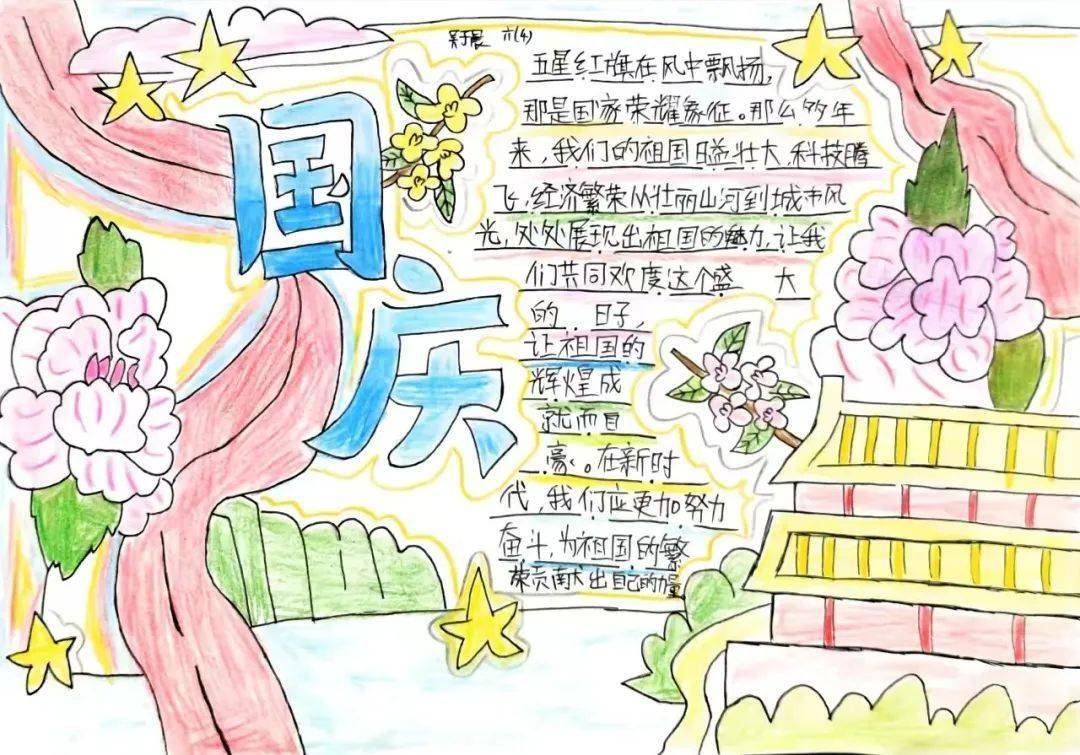 国
庆
六(4)
五星红旗在风中飘扬,
那是国家荣耀象征。那么多年
来,我们的祖国日益壮大,科技腾
飞,经济繁荣从壮丽山河到城市风
光,处处展现出祖国的魅力,让我
们共同欢度这个盛 大
的 日子,
让祖国的
辉煌成
就而自
豪。在新时
代,我们应更加努力
奋斗,为祖国的繁
荣贡献出自己的量